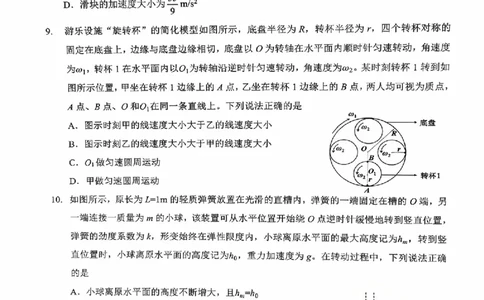 D. 滑块的加速度大小为 m/s²
9
9. 游乐设施“旋转杯”的简化模型如图所示，底盘半径为 R，转杯半径为 r，四个转杯对称的
固定在底盘上，边缘与底盘边缘相切，底盘以 O 为转轴在水平面内顺时针匀速转动，角速度
为ω₁，转杯 1 在水平面内以O₁为转轴沿逆时针匀速转动，角速度为ω₂。某时刻转杯 1 转到如
图所示位置，甲坐在转杯 1 边缘的 A 点，乙坐在转杯 1 边缘的 B 点，两人均可视为质点，
A 点、B 点、O 和O₁在同一条直线上。下列说法正确的是
A. 图示时刻甲的线速度大小大于乙的线速度大小
B. 图示时刻乙的线速度大小大于甲的线速度大小
C. O₁做匀速圆周运动
D. 甲做匀速圆周运动
ω₁
底盘
ω₂
R
ω₂
O
r
B
ω₂
O₁
r
转杯1
A
10. 如图所示，原长为 L=1m 的轻质弹簧放置在光滑的直槽内，弹簧的一端固定在槽的 O 端，另
一端连接一质量为 m 的小球，该装置可从水平位置开始绕 O 点逆时针缓慢地转到竖直位置，
弹簧的劲度系数为 k，形变始终在弹性限度内，小球离原水平面的最大高度记为hₘ，转到竖
直位置时，小球离原水平面的高度记为h₀，重力加速度为 g。在转动过程中，下列说法正确
的是
A. 小球离原水平面的高度不断增大，且hₘ=h₀